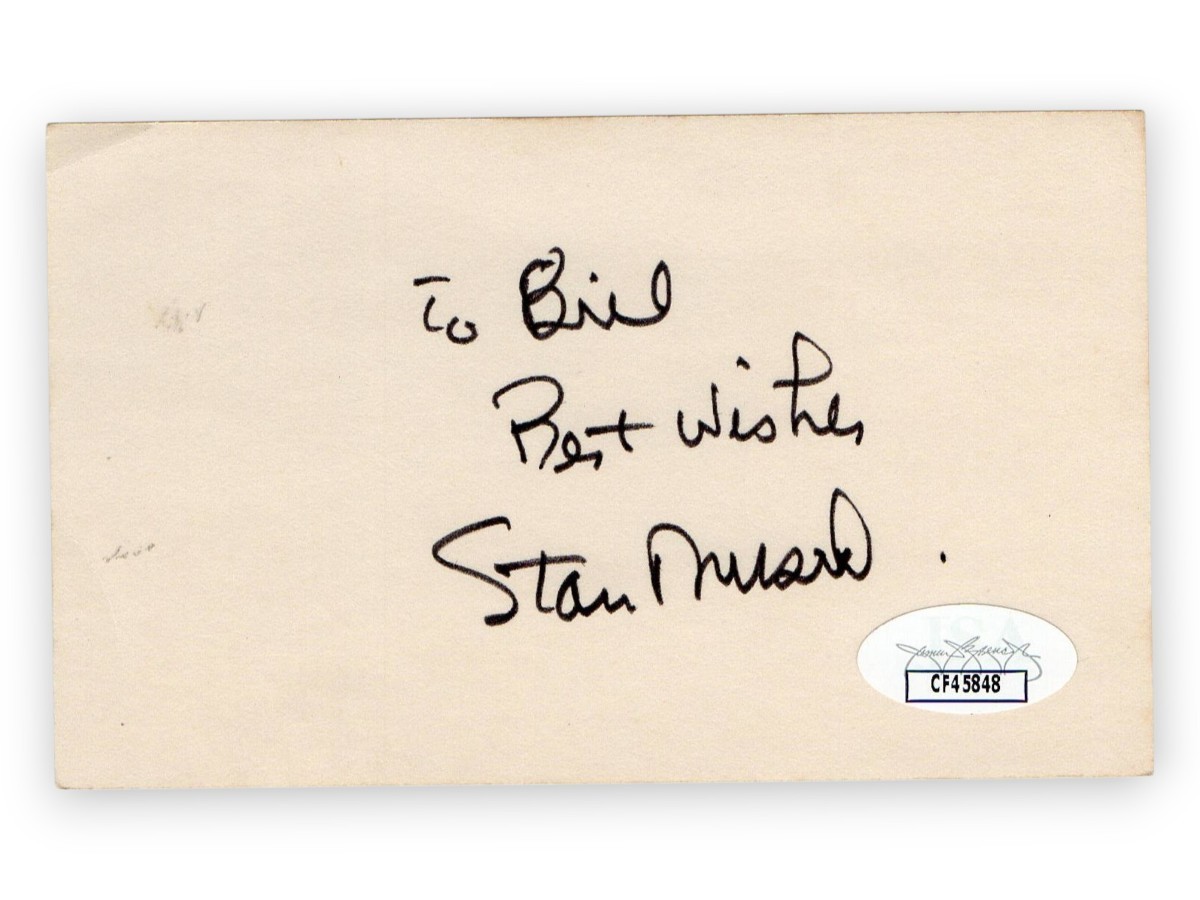 To Bill
Best Wishes
Stan Musial
JSA
CF45848